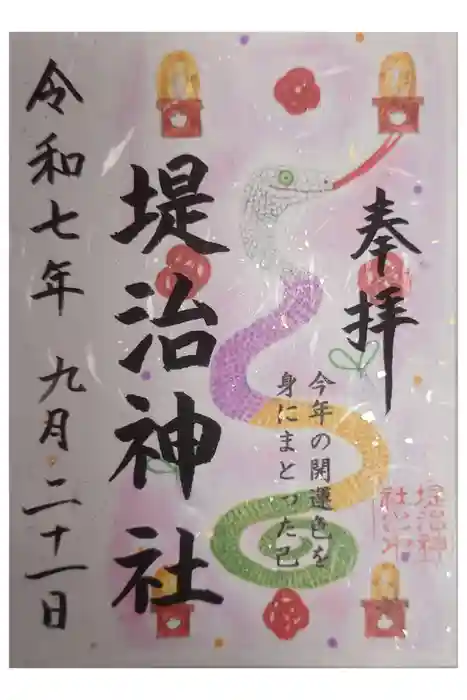 奉拝
堤治神社
今年の開運色を
身にまとった己
令和七年 九月二十一日